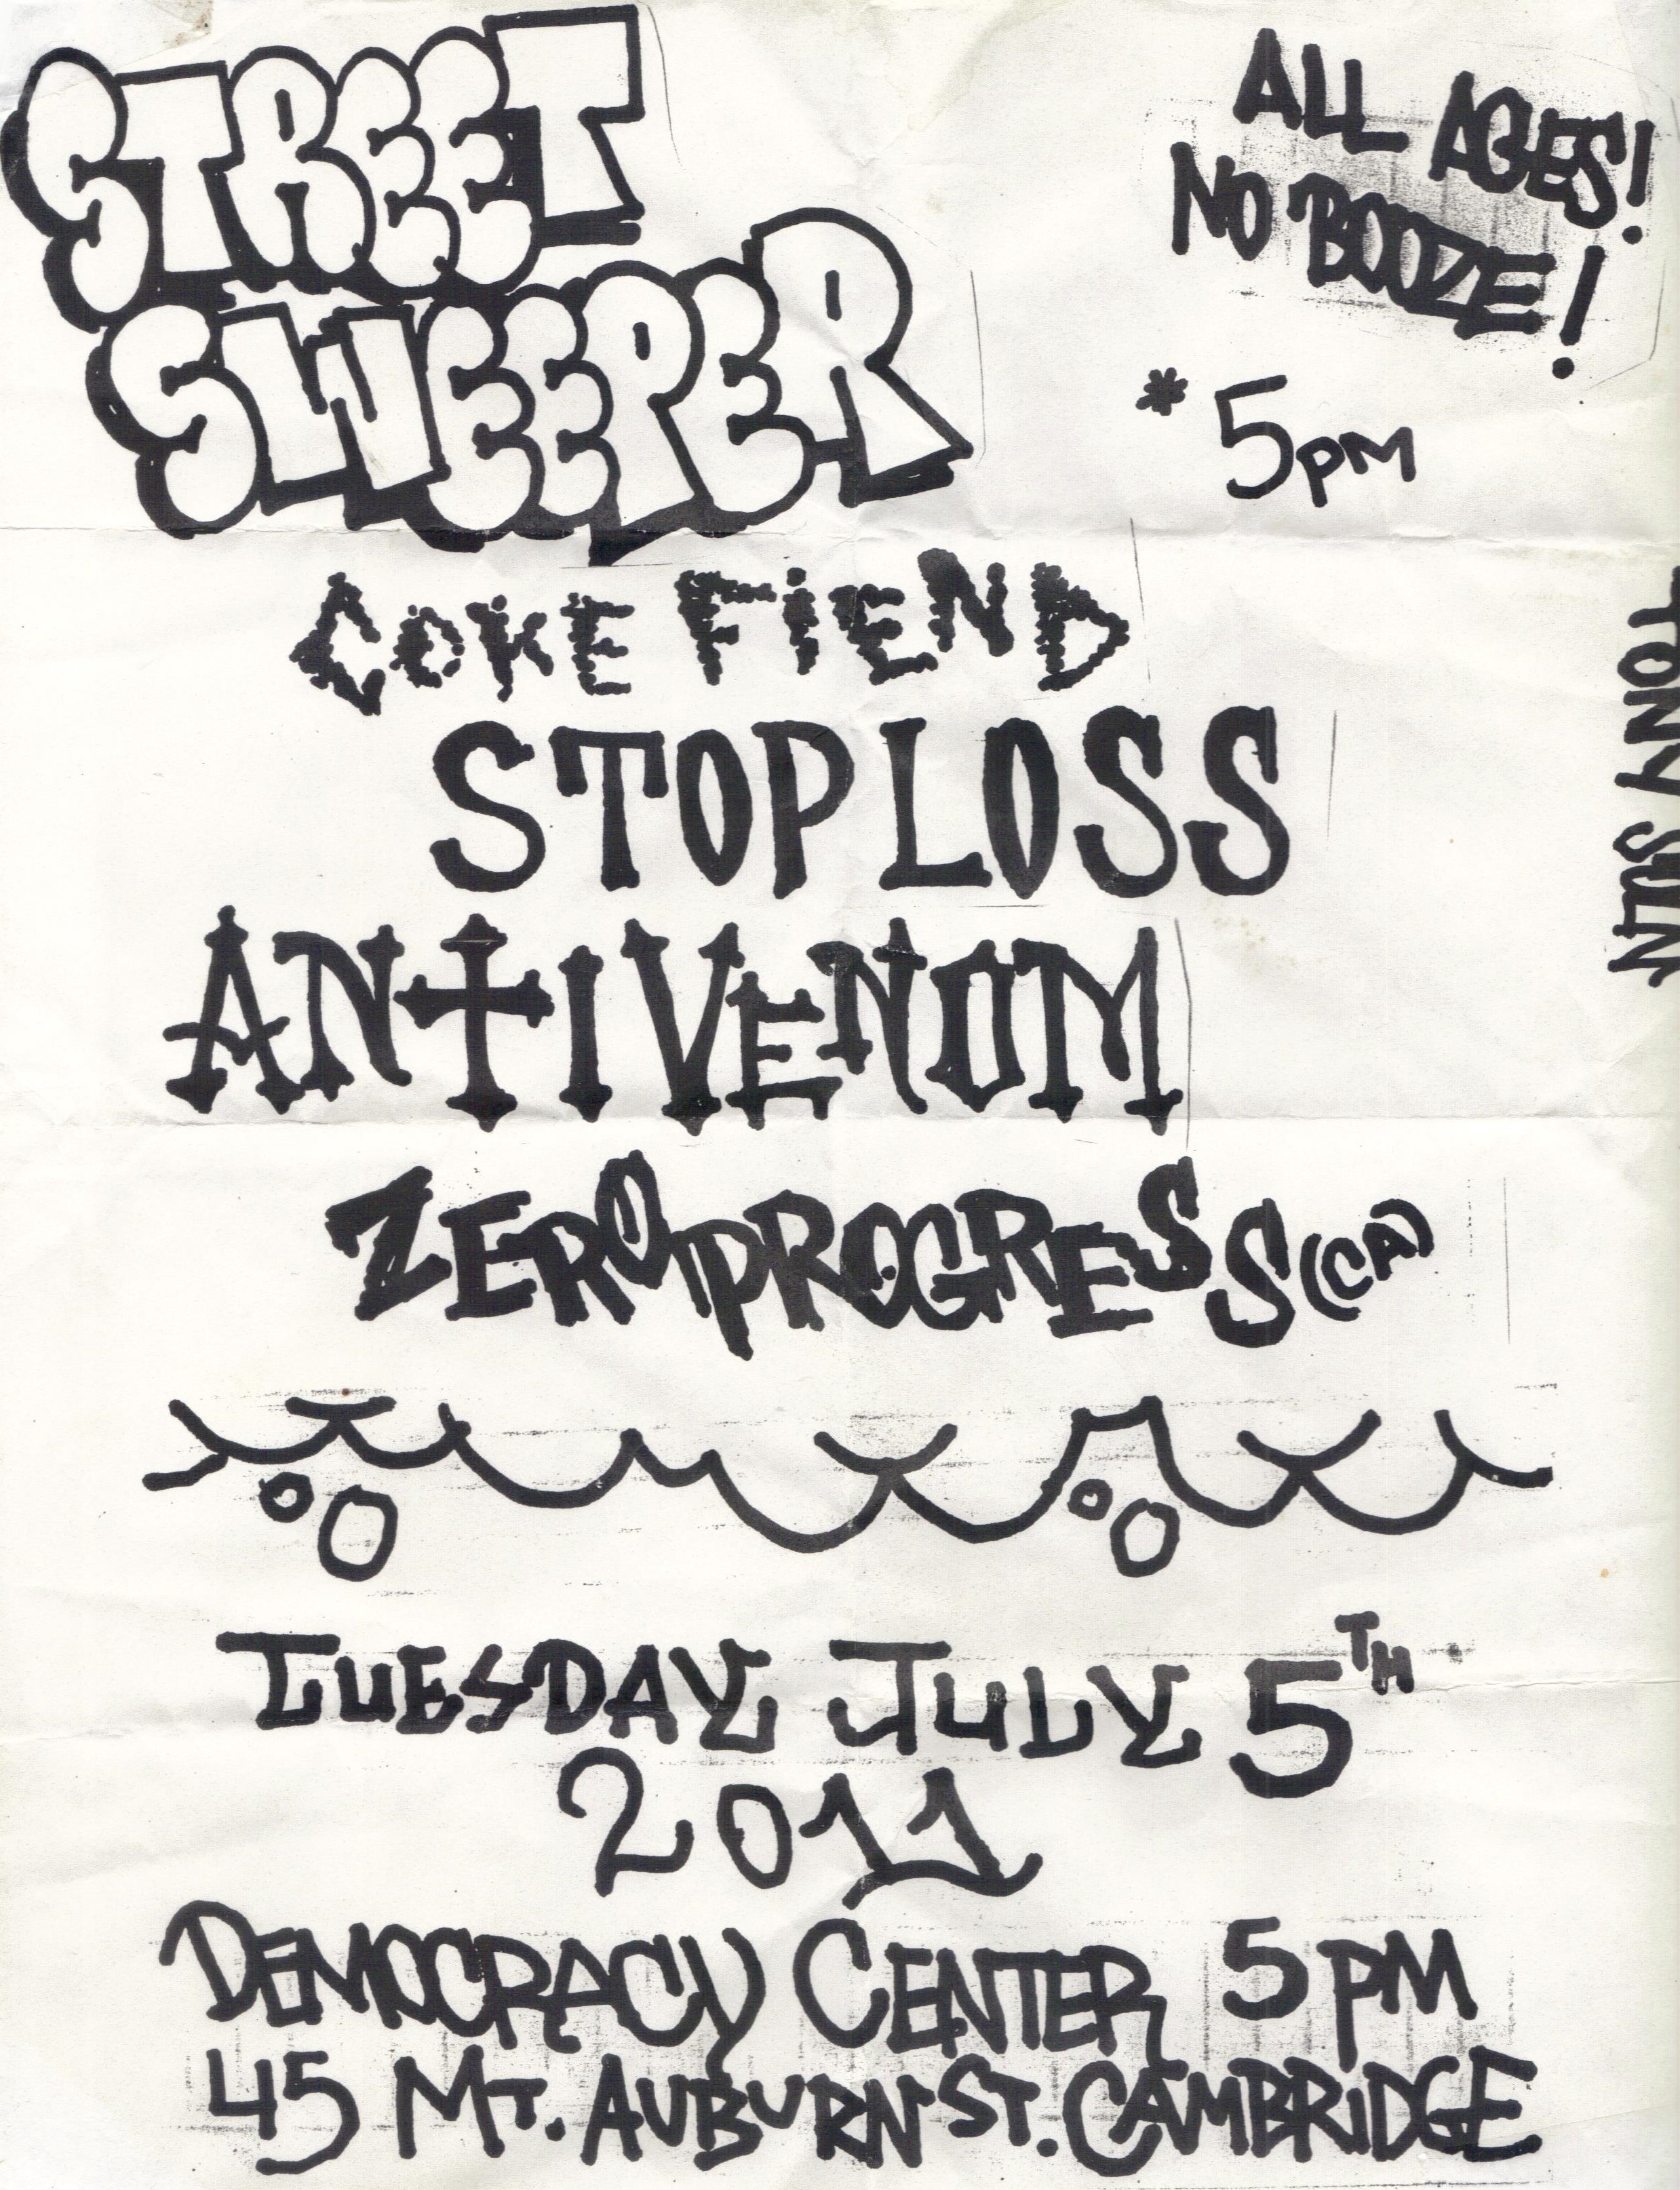 STREET
SWEEPER
ALL AGES!
NO BOOZE!
*5PM
COKE FIEND
STOP LOSS
ANTIVENOM
ZERO PROGRESS (CA)
TONY
TUESDAY JULY 5TH
2011
DEMOCRACY CENTER 5PM
45 MT. AUBURN ST. CAMBRIDGE